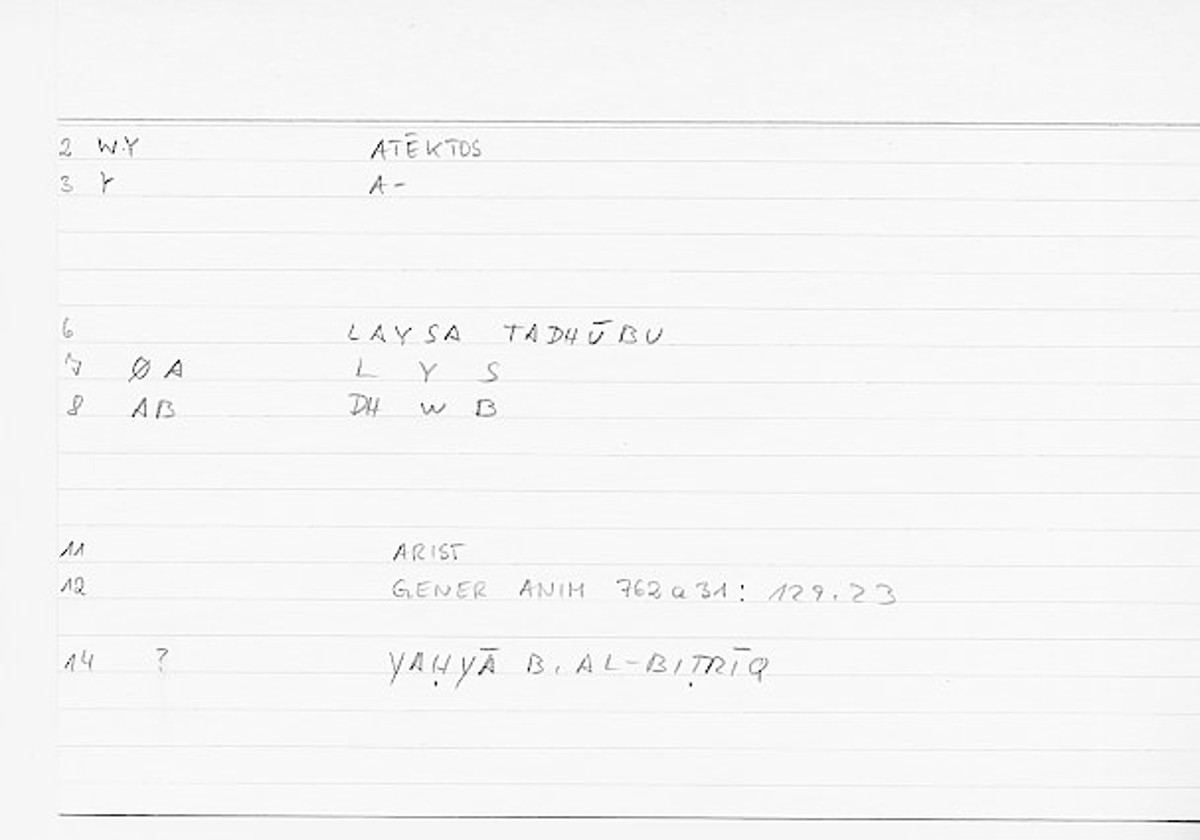 2 W.Y ATĒKTOS
3 Y A-
6 LAYSA TADHŪBU
7 Ø A L Y S
8 AB DH W B
11 ARIST
12 GENER ANIM 762a31: 129.23
14 ? YAḤYĀ B. AL-BIṬRĪQ